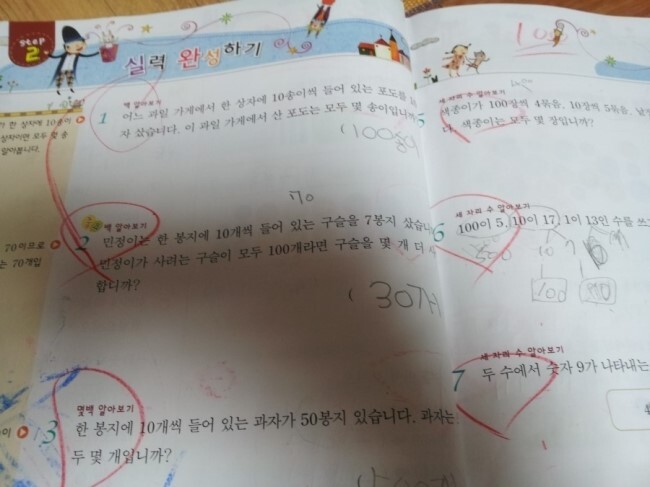 step 2
실력 완성하기
백 알아보기
1 어느 과일 가게에서 한 상자에 10송이씩 들어 있는 포도를
자 샀습니다. 이 과일 가게에서 산 포도는 모두 몇 송이입니까?
(100송이
70
백 알아보기
2 민정이는 한 봉지에 10개씩 들어 있는 구슬을 7봉지 샀습니
민정이가 사려는 구슬이 모두 100개라면 구슬을 몇 개 더
합니까?
(30개
몇백 알아보기
3 한 봉지에 10개씩 들어 있는 과자가 50봉지 있습니다. 과자는
두 몇 개입니까?
70이므로
는 70개입
알아봅니다.
100
세 자리 수 알아보기
5 색종이가 100장씩 4묶음, 10장씩 5묶음, 낱
다. 색종이는 모두 몇 장입니까?
세 자리 수 알아보기
6 100이 5, 10이 17, 1이 13인 수를 쓰
100
세 자리 수 알아보기
7 두 수에서 숫자 9가 나타내는